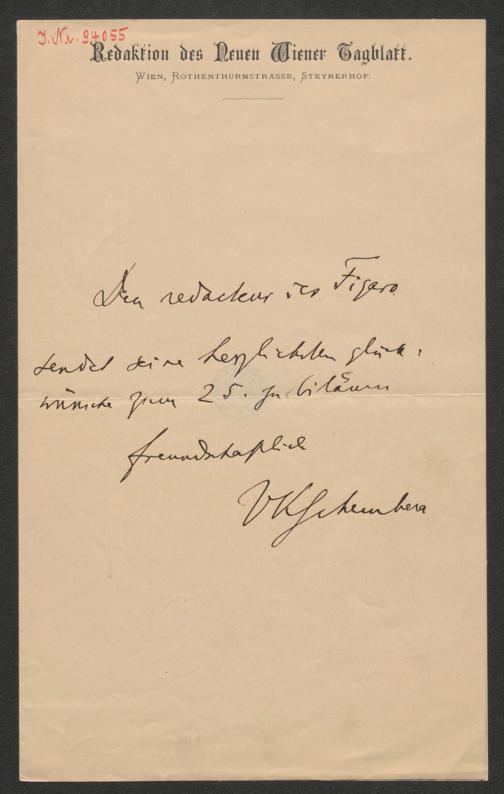 J. Nr. 94055
Redaktion des Neuen Wiener Tagblatt.
Wien, Rothenthurmstrasse, Steyrerhof.
Dem redacteur des Figaro
sendet seine herzlichsten glück-
wünsche zum 25. Jubiläum
freundschaftlich
VKSchembera